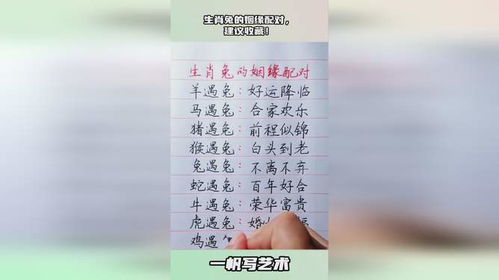 生肖兔的姻缘配对,
建议收藏!
生肖兔的姻缘配对
羊遇兔:好运降临
马遇兔:合家欢乐
猪遇兔:前程似锦
猴遇兔:白头到老
兔遇兔:不离不弃
蛇遇兔:百年好合
牛遇兔:荣华富贵
虎遇兔:婚
鸡遇
一帆写艺术